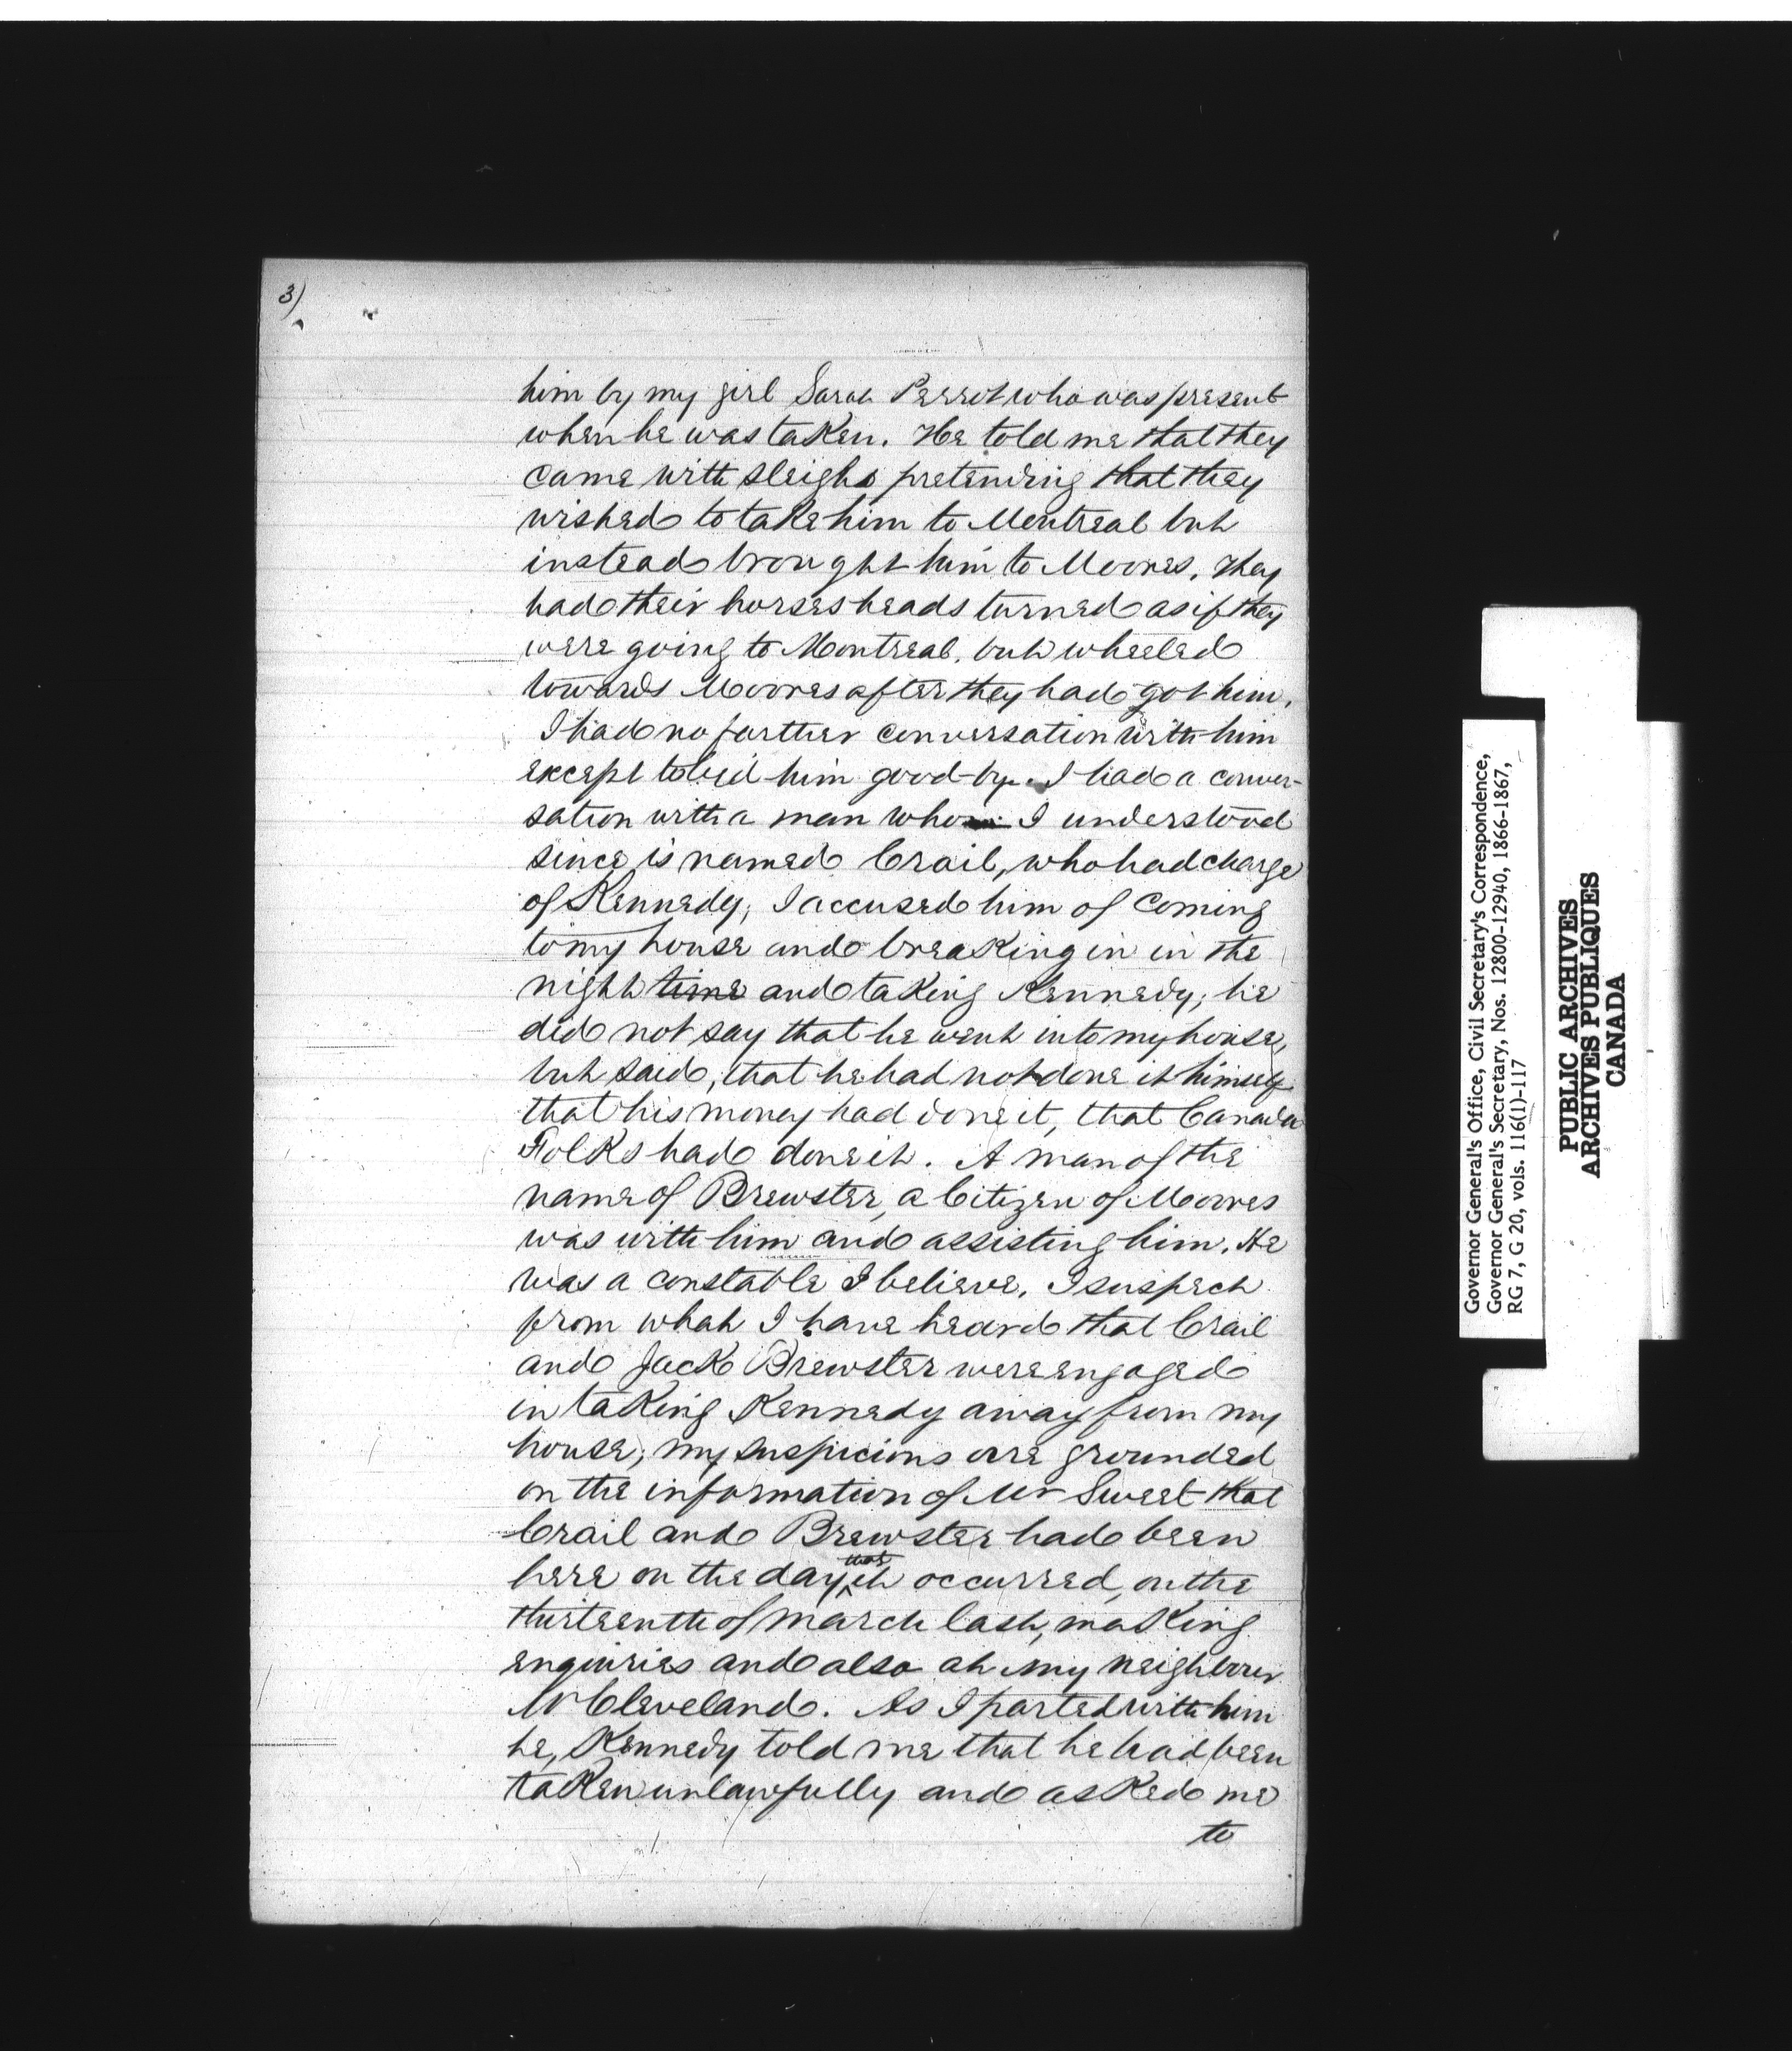 3)
him by my girl Sarah Perrot who was present
when he was taken. He told me that they
came with sleighs pretending that they
wished to take him to Montreal but
instead brought him to Moores. They
had their horses heads turned as if they
were going to Montreal, but wheeled
towards Moores after they had got him.
I had no further conversation with him
except to bid him good-by. I had a conver-
sation with a man who I understood
since is named Crail, who had charge
of Kennedy, I accused him of coming
to my house and breaking in in the
night time and taking Kennedy; he
did not say that he went into my house,
but said, that he had not done it himself
that his money had done it, that Canada
Folks had done it. A man of the
name of Brewster, a Citizen of Moores
was with him and assisting him. He
was a constable I believe. I suspect
from what I have heard that Crail
and Jack Brewster were engaged
in taking Kennedy away from my
house; my suspicions are grounded
on the information of Mr Sweet that
Crail and Brewster had been
here on the day that it occurred, on the
thirteenth of March last, making
enquiries and also at my neighbour
Mr Cleveland. As I parted with him
he, Kennedy told me that he had been
taken unlawfully and asked me
to
Governor General's Office, Civil Secretary's Correspondence,
Governor General's Secretary, Nos. 12800-12940, 1866-1867,
RG 7, G 20, vols. 116(1)-117
PUBLIC ARCHIVES
ARCHIVES PUBLIQUES
CANADA